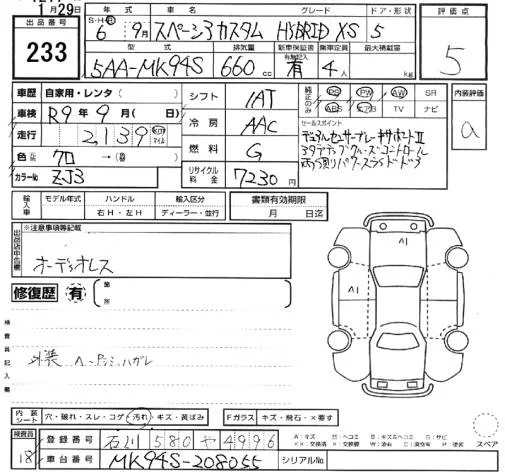 月29日
出品番号
233
S・H・R 車名 グレード ドア・形状
6年9月 スペーシアカスタム HYBRID XS 5
型式 排気量 新車保証書 乗車定員 最大積載量
有無記入
5AA-MK94S 660cc 有 4人 kg
評価点
5
車歴 自家用・レンタ( )
シフト IAT
純正のみ PS PW AW SR
ABS エアB TV ナビ
内装評価
a
車検 R9年9月( 日)
冷房 AAC
走行 2,139 km マイル
燃料 G
色 クロ →( )
カラーNo Z-J3
リサイクル料金 7230円
セールスポイント
デュアルセンサーブレーキサポートII
アダプティブクルーズコントロール
両側パワースライドドア
輸入車 モデル年式 ハンドル 輸入区分
年 右H・左H ディーラー・並行
書類有効期限
月 日迄
※注意事項等記載
オーディオレス
修復歴 有 箇所
検査員記入欄
外装 ヘ
A1
A1
内装シート 穴・破れ・スレ・コゲ・汚れ・キズ・黄ばみ Fガラス キズ・飛石・×要す
検査員
18
登録番号 石川 580 や 4996
車台番号 MK94S-208055 シリアルNo
A:キズ U:ヘコミ B:キズ&ヘコミ S:サビ
スペア